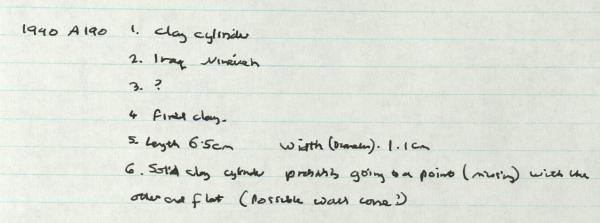 1990 A190 1. Clay cylinder
2. Iraq Nineveh
3. ?
4 Fired clay.
5. Length 6.5cm width (Diameter). 1.1cm
6. Solid clay cylinder probably going to a point (missing) with the
other end flat (Possible wall cone?)